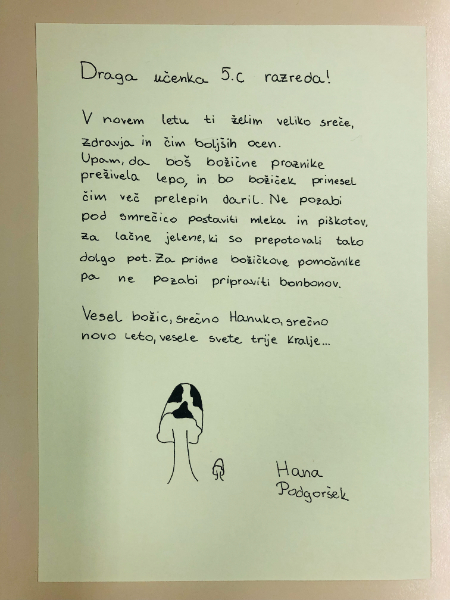 Draga učenka 5.c razreda!
V novem letu ti želim veliko sreče,
zdravja in čim boljših ocen.
Upam, da boš božične praznike
preživela lepo, in bo božiček prinesel
čim več prelepih daril. Ne pozabi
pod smrečico postaviti mleka in piškotov,
za lačne jelene, ki so prepotovali tako
dolgo pot. Za pridne božičkove pomočnike
pa ne pozabi pripraviti bonbonov.
Vesel božic, srečno Hanuko, srečno
novo leto, vesele svete trije kralje...
Hana
Podgoršek